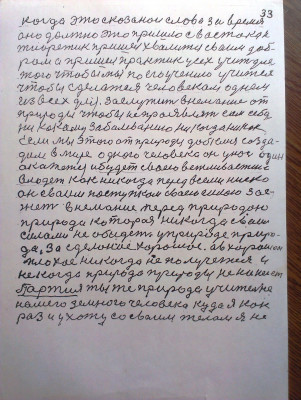 33
когда это сказано слово за время
оно должно это пришло с востока как
теоретик пришел хвалится своим доб-
ром а пришел практик усех учит для
того чтобы мы поступению учится
чтобы сделатся человеком одном
из всех для заслужит внемание от
природы чтобы не проявлят сам себе
ни какому заболеванию ни
Если мы этого от природы добемся созда-
дим в мире одного человека он у нас один
окажется и будет своею
как некогда перед всеми нико
он своим поступком своею силою зас-
жет внемание перед природою
природа которая никогда своими
силами не обидет у природе приро-
да, за сделаное хорошое. а в хорошом
плохое никогда не получется и
некогда природа природу не накажет
Партия ты же природа учителке
нашего земного человека куда я как
раз и ухожу со своим телом я не